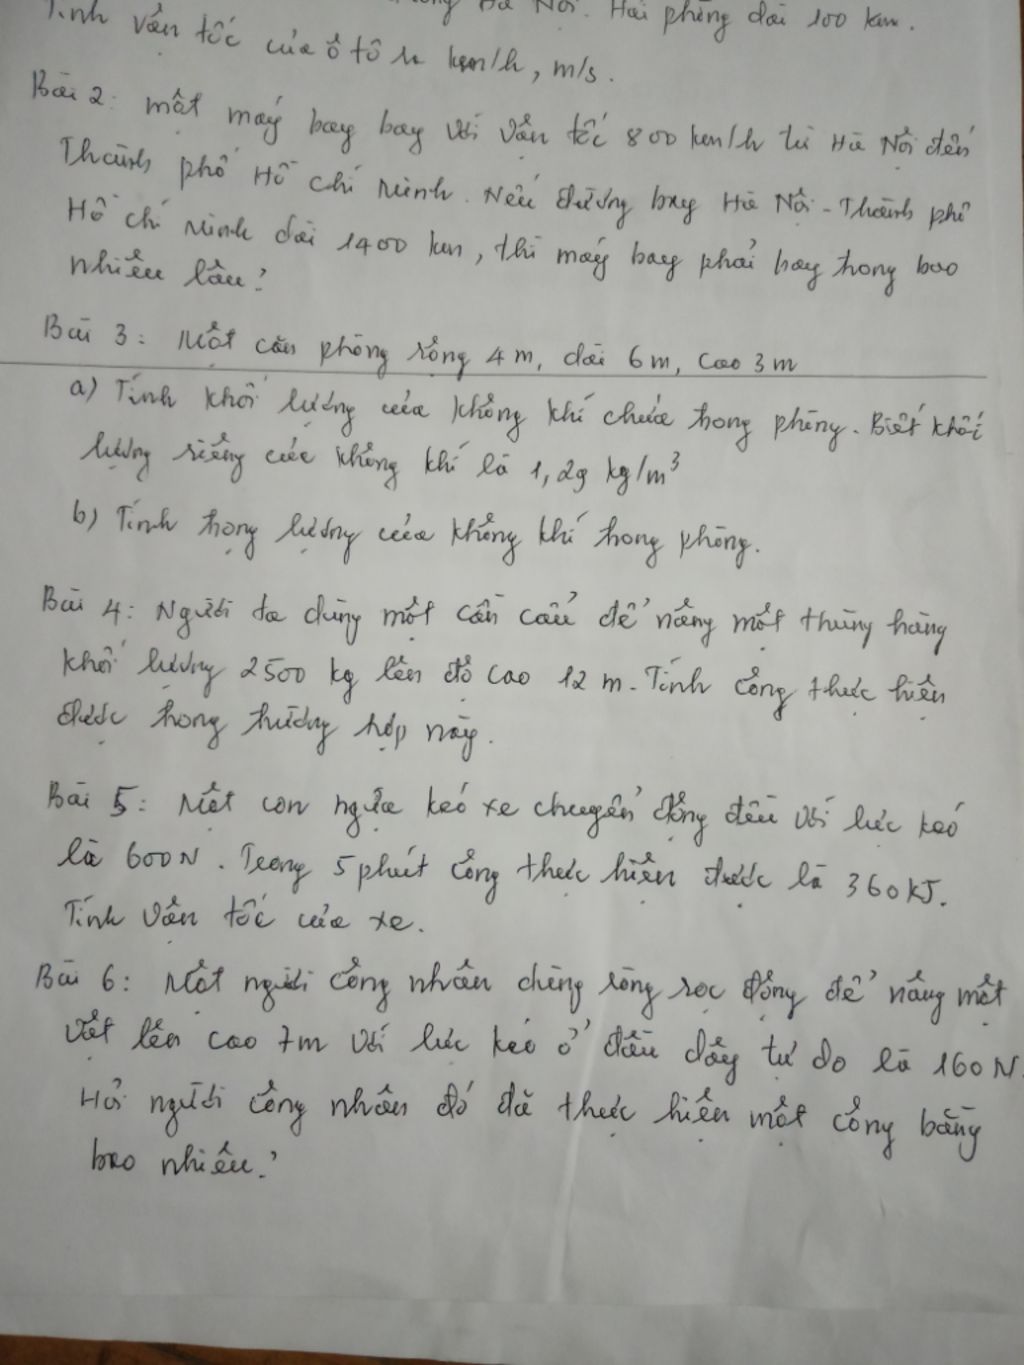 Hà Nội. Hải phòng dài 100 km.
Tính vận tốc của ô tô ra km/h, m/s.
Bài 2: một máy bay bay với vận tốc 800 km/h từ Hà Nội đến
Thành phố Hồ chí Minh. Nếu đường bay Hà Nội - Thành phố
Hồ chí Minh dài 1400 km, thì máy bay phải bay trong bao
nhiêu lâu?
Bài 3: Một căn phòng rộng 4 m, dài 6 m, cao 3 m
a) Tính khối lượng của không khí chứa trong phòng. Biết khối
lượng riêng của không khí là 1,29 kg/m³
b) Tính trọng lượng của không khí trong phòng.
Bài 4: Người ta dùng một cần cẩu để nâng một thùng hàng
khối lượng 2500 kg lên độ cao 12 m. Tính công thực hiện
được trong trường hợp này.
Bài 5: Một con ngựa kéo xe chuyển động đều với lực kéo
là 600N. Trong 5 phút công thực hiện được là 360kJ.
Tính vận tốc của xe.
Bài 6: Một người công nhân dùng ròng rọc động để nâng một
vật lên cao 7m với lực kéo ở đầu dây tự do là 160N.
Hỏi người công nhân đó đã thực hiện một công bằng
bao nhiêu?